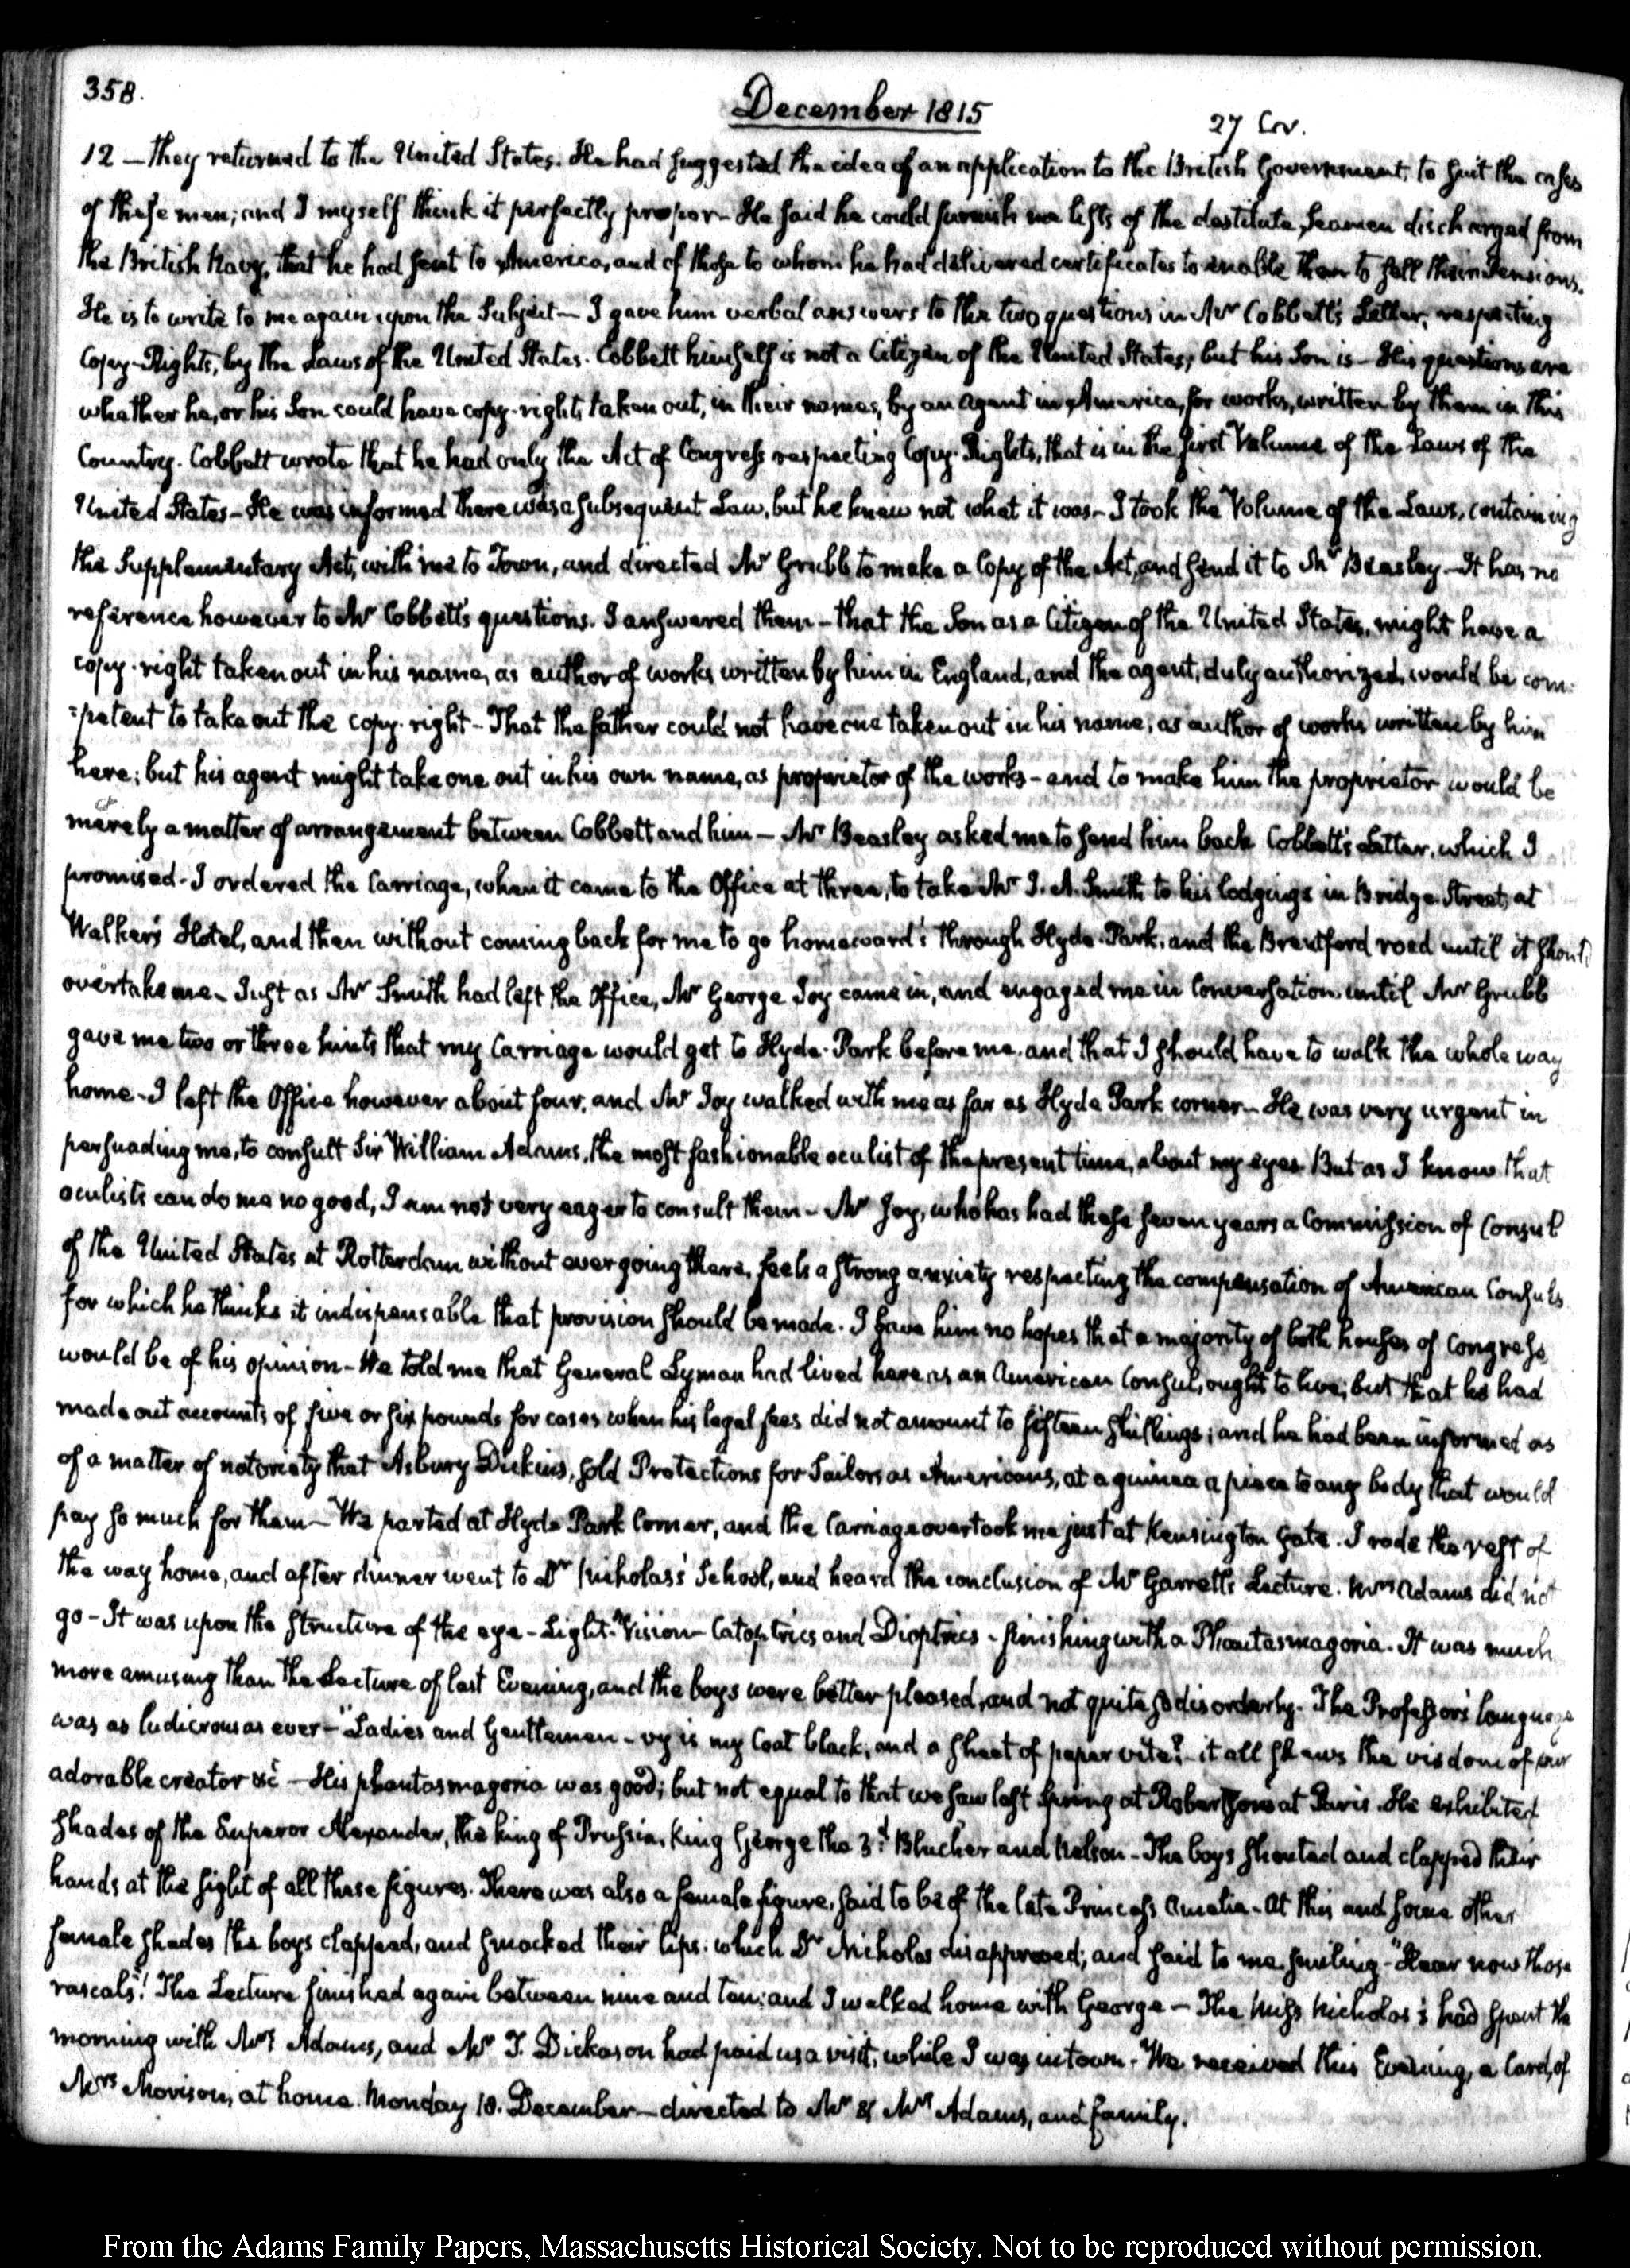 358.
December 1815
27 Cov.
12 — they returned to the United States. He had suggested the idea of an application to the British Government, to suit the cases
of these men; and I myself think it perfectly proper — He said he could furnish me lists of the destitute, Seamen discharged from
the British Navy, that he had sent to America, and of those to whom he had delivered certificates to enable them to sell their Pensions.
He is to write to me again upon the Subject — I gave him verbal answers to the two questions in Mr Cobbett's Letter, respecting
Copy-Rights, by the Laws of the United States. Cobbett himself is not a Citizen of the United States; but his Son is — His questions are
whether he, or his Son could have copy-rights taken out, in their names, by an agent in America, for works, written by them in this
Country. Cobbett wrote that he had only the Act of Congress respecting Copy-Rights, that is in the first Volume of the Laws of the
United States — He was informed there was a subsequent Law, but he knew not what it was — I took the Volume of the Laws, containing
the Supplementary Act, with me to Town, and directed Mr Grubb to make a Copy of the Act, and send it to Mr Beasley — It has no
reference however to Mr Cobbett's questions. I answered them — that the Son as a Citizen of the United States, might have a
copy-right taken out in his name, as author of works written by him in England, and the agent, duly authorized, would be com-
=petent to take out the copy-right — That the father could not have one taken out in his name, as author of works written by him
here; but his agent might take one out in his own name, as proprietor of the works — and to make him the proprietor would be
merely a matter of arrangement between Cobbett and him — Mr Beasley asked me to send him back Cobbett's Letter, which I
promised. I ordered the Carriage, when it came to the Office at three, to take Mr J. A. Smith to his lodgings in Bridge Street, at
Walker's Hotel, and then without coming back for me to go homewards through Hyde-Park, and the Brentford road until it should
overtake me. Just as Mr Smith had left the Office, Mr George Joy came in, and engaged me in Conversation until Mr Grubb
gave me two or three hints that my Carriage would get to Hyde-Park before me, and that I should have to walk the whole way
home. I left the Office however about four, and Mr Joy walked with me as far as Hyde Park corner — He was very urgent in
persuading me, to consult Sir William Adams, the most fashionable oculist of the present time, about my eyes. But as I know that
oculists can do me no good, I am not very eager to consult them — Mr Joy, who has had these seven years a Commission of Consul
of the United States at Rotterdam without ever going there, feels a strong anxiety respecting the compensation of American Consuls
for which he thinks it indispensable that provision should be made. I gave him no hopes that a majority of both houses of Congress
would be of his opinion — He told me that General Lyman had lived here as an American Consul, ought to live; but that he had
made out accounts of five or six pounds for cases when his legal fees did not amount to fifteen shillings; and he had been informed as
of a matter of notoriety that Asbury Dickins, sold Protections for Sailors as Americans, at a guinea a piece to any body that would
pay so much for them — We parted at Hyde Park Corner, and the Carriage overtook me just at Kensington Gate. I rode the rest of
the way home, and after dinner went to Dr Nicholas's School, and heard the conclusion of Mr Garrett's Lecture. Mrs Adams did not
go — It was upon the structure of the eye — Light — Vision — Catoptrics and Dioptrics — finishing with a Phantasmagoria. It was much
more amusing than the Lecture of last Evening, and the boys were better pleased, and not quite so disorderly. The Professor's language
was as ludicrous as ever — "Ladies and Gentlemen — vy is my Coat black, and a sheet of paper vite? — it all shews the visdom of our
adorable creator &c — His phantasmagoria was good; but not equal to that we saw last Spring at Robertson's at Paris. He exhibited
Shades of the Emperor Alexander, the king of Prussia, King George the 3d Blucher and Nelson — The boys shouted and clapped their
hands at the sight of all these figures. There was also a female figure, said to be of the late Princess Amelia — At this and some other
female shades the boys clapped, and smacked their lips: which Dr Nicholas disapproved; and said to me smiling — "Hear now those
rascals"! The Lecture finished again between nine and ten; and I walked home with George — The Miss Nicholas's had spent the
morning with Mrs Adams, and Mr T. Dickason had paid us a visit, while I was in town. We received this Evening, a Card, of
Mrs Morison, at home. Monday 18. December — directed to Mr & Mrs Adams, and family.
From the Adams Family Papers, Massachusetts Historical Society. Not to be reproduced without permission.